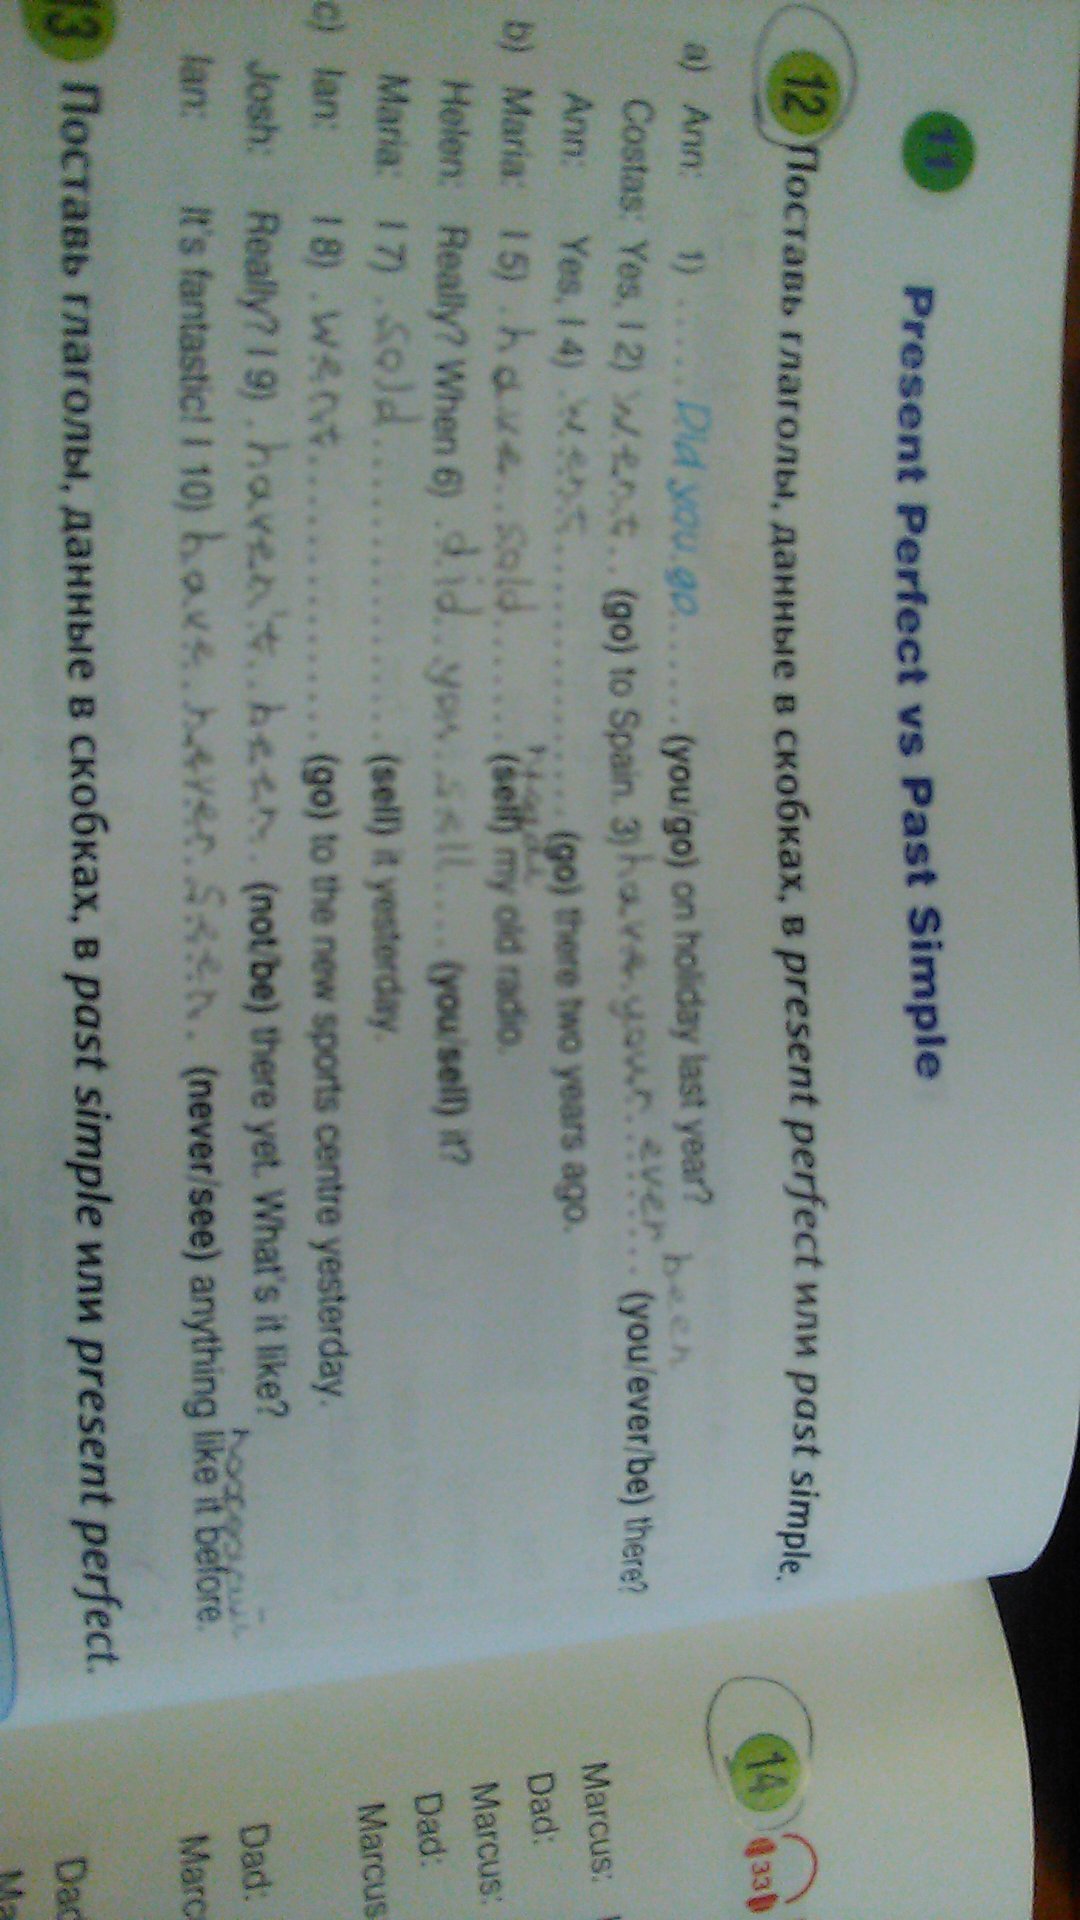 11 Present Perfect vs Past Simple
12 Поставь глаголы, данные в скобках, в present perfect или past simple.
a) Ann: 1) ..... Did you go ...... (you/go) on holiday last year?
been
Costas: Yes, I 2) went .. (go) to Spain. 3) have your ever ...... (you/ever/be) there?
Ann: Yes, I 4) . went .............. (go) there two years ago.
b) Maria: I 5) . have .. sold ....... (sell) my old radio.
Helen: Really? When 6) . did .. you . sell .... (you/sell) it?
Maria: I 7) . sold .............. (sell) it yesterday.
c) Ian: I 8) . went .............. (go) to the new sports centre yesterday.
Josh: Really? I 9) . haven't .. been . (not/be) there yet. What's it like?
Ian: It's fantastic! I 10) have .. never . seen . (never/see) anything like it before.
13 Поставь глаголы, данные в скобках, в past simple или present perfect.
14 33
Marcus:
Dad:
Marcus:
Dad:
Marcus
Dad:
Marc
Dad
Ma